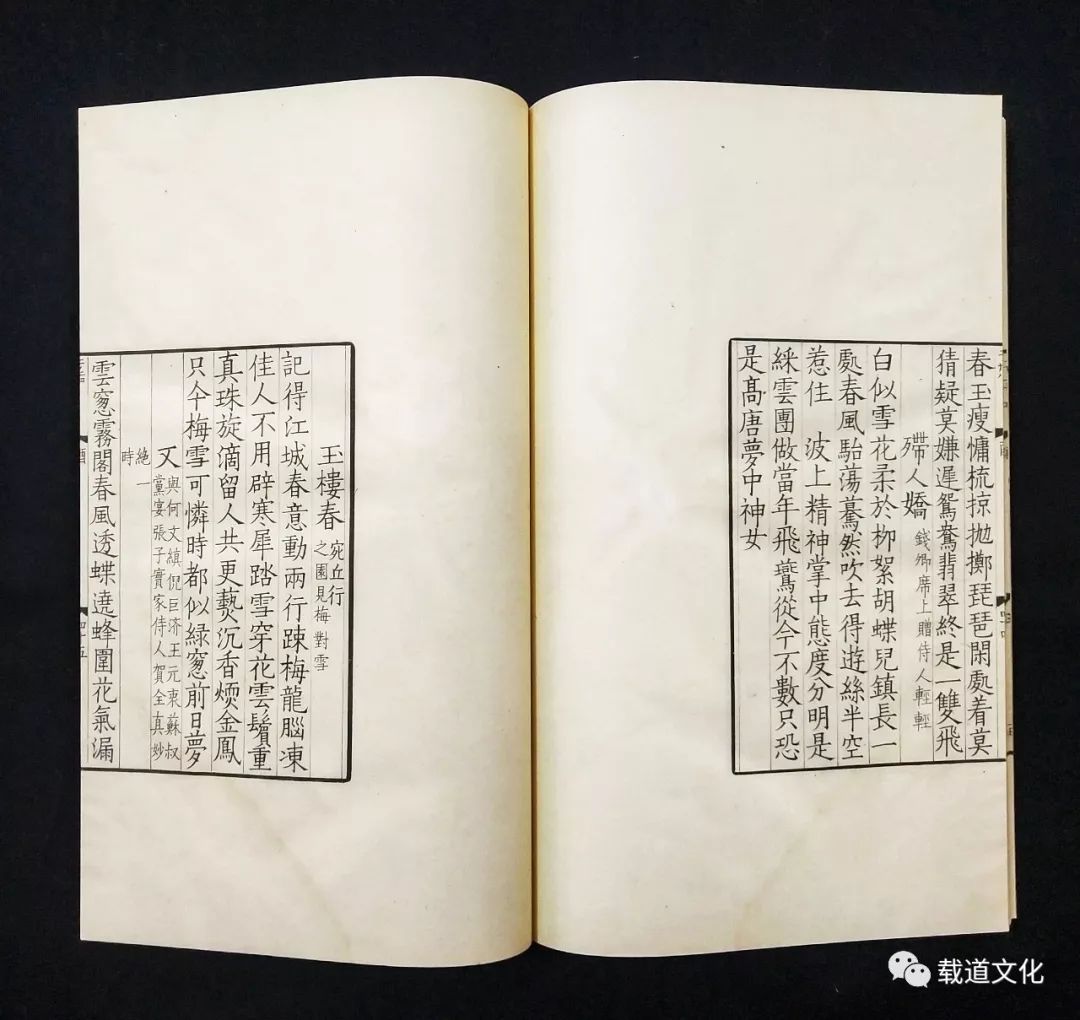 春玉瘦慵梳掠抛擲琵琶閑處着莫
猜疑莫嫌遲鴛鴦翡翠終是一雙飛
殢人嬌 錢卿席上贈侍人輕輕
白似雪花柔於柳絮胡蝶兒鎮長一
處春風駘蕩驀然吹去得遊絲半空
惹住 波上精神掌中態度分明是
綵雲團做當年飛鷰從今不數只恐
是髙唐夢中神女
玉樓春 宛丘行
之園見梅對雪
記得江城春意動兩行疎梅龍腦凍
佳人不用辟寒犀踏雪穿花雲鬢重
真珠旋滴留人共更爇沉香煗金鳳
只今梅雪可憐時都似緑窓前日夢
又 與何文縝倪巨济王元衷蘇叔
黨宴張子實家侍人賀全真妙
絶一
時
雲窓霧閣春風透蝶遶蜂圍花氣漏
载道文化